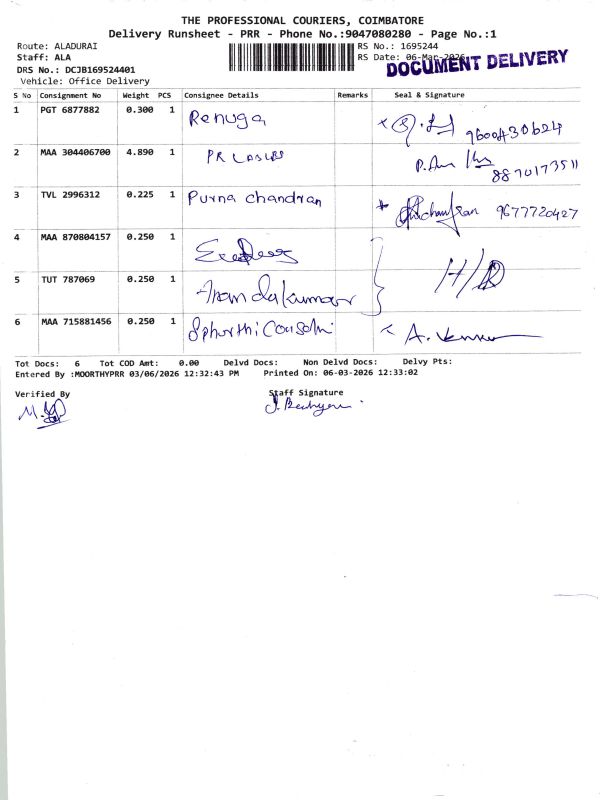 THE PROFESSIONAL COURIERS, COIMBATORE
Delivery Runsheet - PRR - Phone No.:9047080280 - Page No.:1
Route: ALADURAI RS No.: 1695244
Staff: ALA RS Date: 06-Mar-2026
DOCUMENT DELIVERY
DRS No.: DCJB169524401
Vehicle: Office Delivery
S No Consignment No Weight PCS Consignee Details Remarks Seal & Signature
1 PGT 6877882 0.300 1 Renuga 9600430624
2 MAA 304406700 4.890 1 8870173511
3 TVL 2996312 0.225 1 Purna chandran 9677720427
4 MAA 870804157 0.250 1
5 TUT 787069 0.250 1 Anandakumar H/D
6 MAA 715881456 0.250 1 Sphurthi
Tot Docs: 6 Tot COD Amt: 0.00 Delvd Docs: Non Delvd Docs: Delvy Pts:
Entered By :MOORTHYPRR 03/06/2026 12:32:43 PM Printed On: 06-03-2026 12:33:02
Verified By Staff Signature